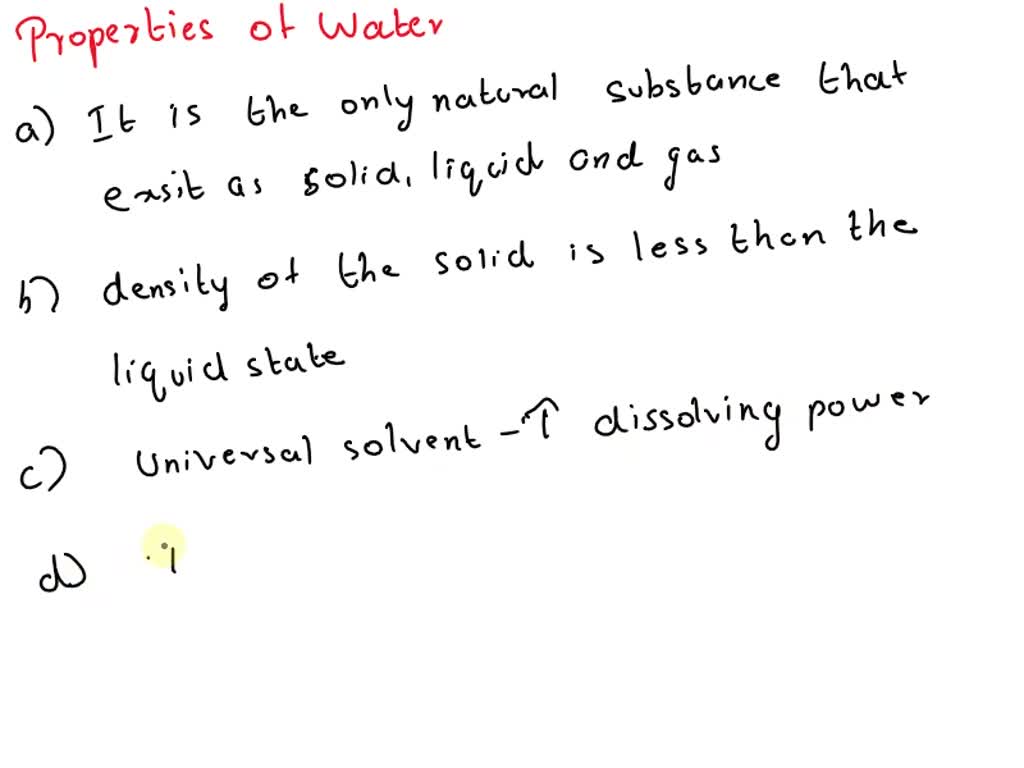 Properties of Water
a) It is the only natural substance that
exsit as solid, liquid and gas
b) density of the solid is less than the
liquid state
c) Universal solvent - ↑ dissolving power
d)